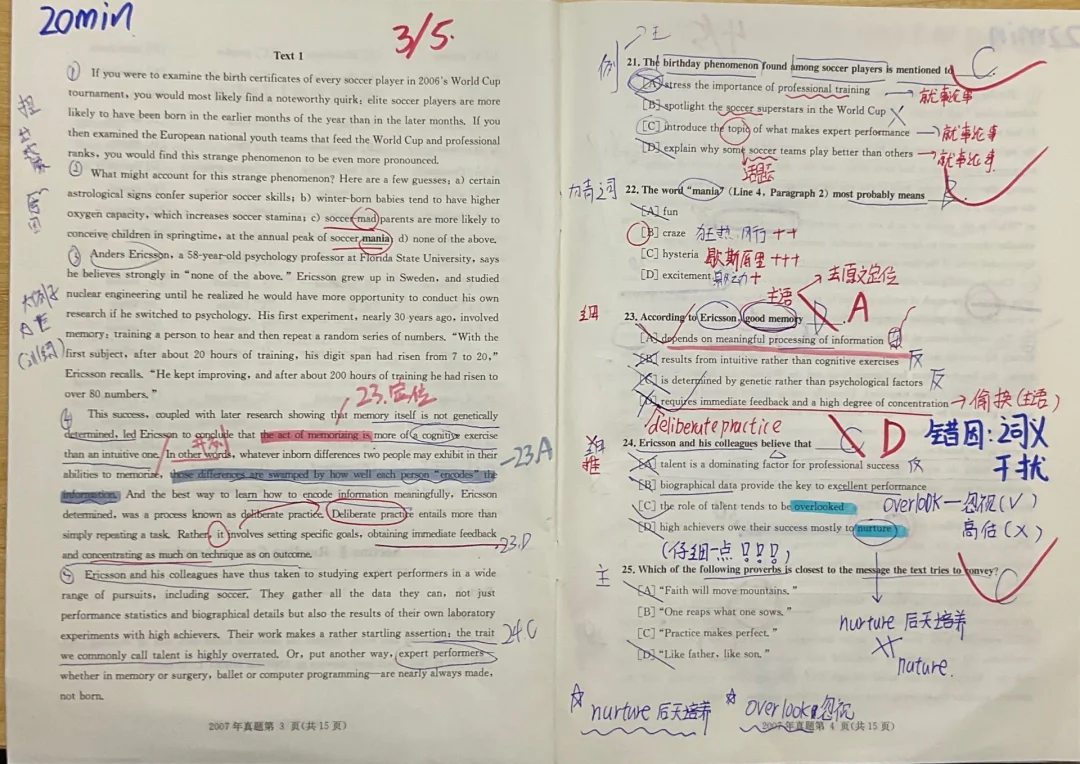 20min
3/5.
Text 1
① If you were to examine the birth certificates of every soccer player in 2006's World Cup
tournament, you would most likely find a noteworthy quirk: elite soccer players are more
likely to have been born in the earlier months of the year than in the later months. If you
then examined the European national youth teams that feed the World Cup and professional
ranks, you would find this strange phenomenon to be even more pronounced.
② What might account for this strange phenomenon? Here are a few guesses: a) certain
astrological signs confer superior soccer skills; b) winter-born babies tend to have higher
oxygen capacity, which increases soccer stamina; c) soccer-mad parents are more likely to
conceive children in springtime, at the annual peak of soccer mania; d) none of the above.
③ Anders Ericsson, a 58-year-old psychology professor at Florida State University, says
he believes strongly in "none of the above." Ericsson grew up in Sweden, and studied
nuclear engineering until he realized he would have more opportunity to conduct his own
research if he switched to psychology. His first experiment, nearly 30 years ago, involved
memory: training a person to hear and then repeat a random series of numbers. "With the
first subject, after about 20 hours of training, his digit span had risen from 7 to 20,"
Ericsson recalls. "He kept improving, and after about 200 hours of training he had risen to
over 80 numbers."
23.定位
④ This success, coupled with later research showing that memory itself is not genetically
determined, led Ericsson to conclude that the act of memorizing is more of a cognitive exercise
than an intuitive one. In other words, whatever inborn differences two people may exhibit in their
abilities to memorize, those differences are swamped by how well each person "encodes" the
information. And the best way to learn how to encode information meaningfully, Ericsson
determined, was a process known as deliberate practice. Deliberate practice entails more than
simply repeating a task. Rather, it involves setting specific goals, obtaining immediate feedback
and concentrating as much on technique as on outcome.
23.A
23.D
⑤ Ericsson and his colleagues have thus taken to studying expert performers in a wide
range of pursuits, including soccer. They gather all the data they can, not just
performance statistics and biographical details but also the results of their own laboratory
experiments with high achievers. Their work makes a rather startling assertion: the trait
we commonly call talent is highly overrated. Or, put another way, expert performers
whether in memory or surgery, ballet or computer programming—are nearly always made,
not born.
24.C
2007年真题第 3 页(共15页)
例
→主
21. The birthday phenomenon found among soccer players is mentioned to
C
[A] stress the importance of professional training
→就事论事
[B] spotlight the soccer superstars in the World Cup
[C] introduce the topic of what makes expert performance
→就事论事
[D] explain why some soccer teams play better than others
→就事论事
话题
猜词
22. The word "mania" (Line 4, Paragraph 2) most probably means
B
[A] fun
[B] craze 狂热 风行 ++
[C] hysteria 歇斯底里 +++
[D] excitement 激动 +
主语
→去原文定位
细
23. According to Ericsson, good memory
D A
[A] depends on meaningful processing of information
[B] results from intuitive rather than cognitive exercises 反
[C] is determined by genetic rather than psychological factors 反
[D] requires immediate feedback and a high degree of concentration →偷换(主语)
deliberate practice
推
24. Ericsson and his colleagues believe that
C D
错因:词义
干扰
[A] talent is a dominating factor for professional success 反
[B] biographical data provide the key to excellent performance
[C] the role of talent tends to be overlooked
overlook—忽视(√)
高估(×)
[D] high achievers owe their success mostly to nurture
(仔细一点!!!)
主
25. Which of the following proverbs is closest to the message the text tries to convey?
C
[A] "Faith will move mountains."
[B] "One reaps what one sows."
[C] "Practice makes perfect."
[D] "Like father, like son."
nurture 后天培养
nature.
☆ nurture 后天培养
☆ overlook 忽视
2007年真题第 4 页(共15页)